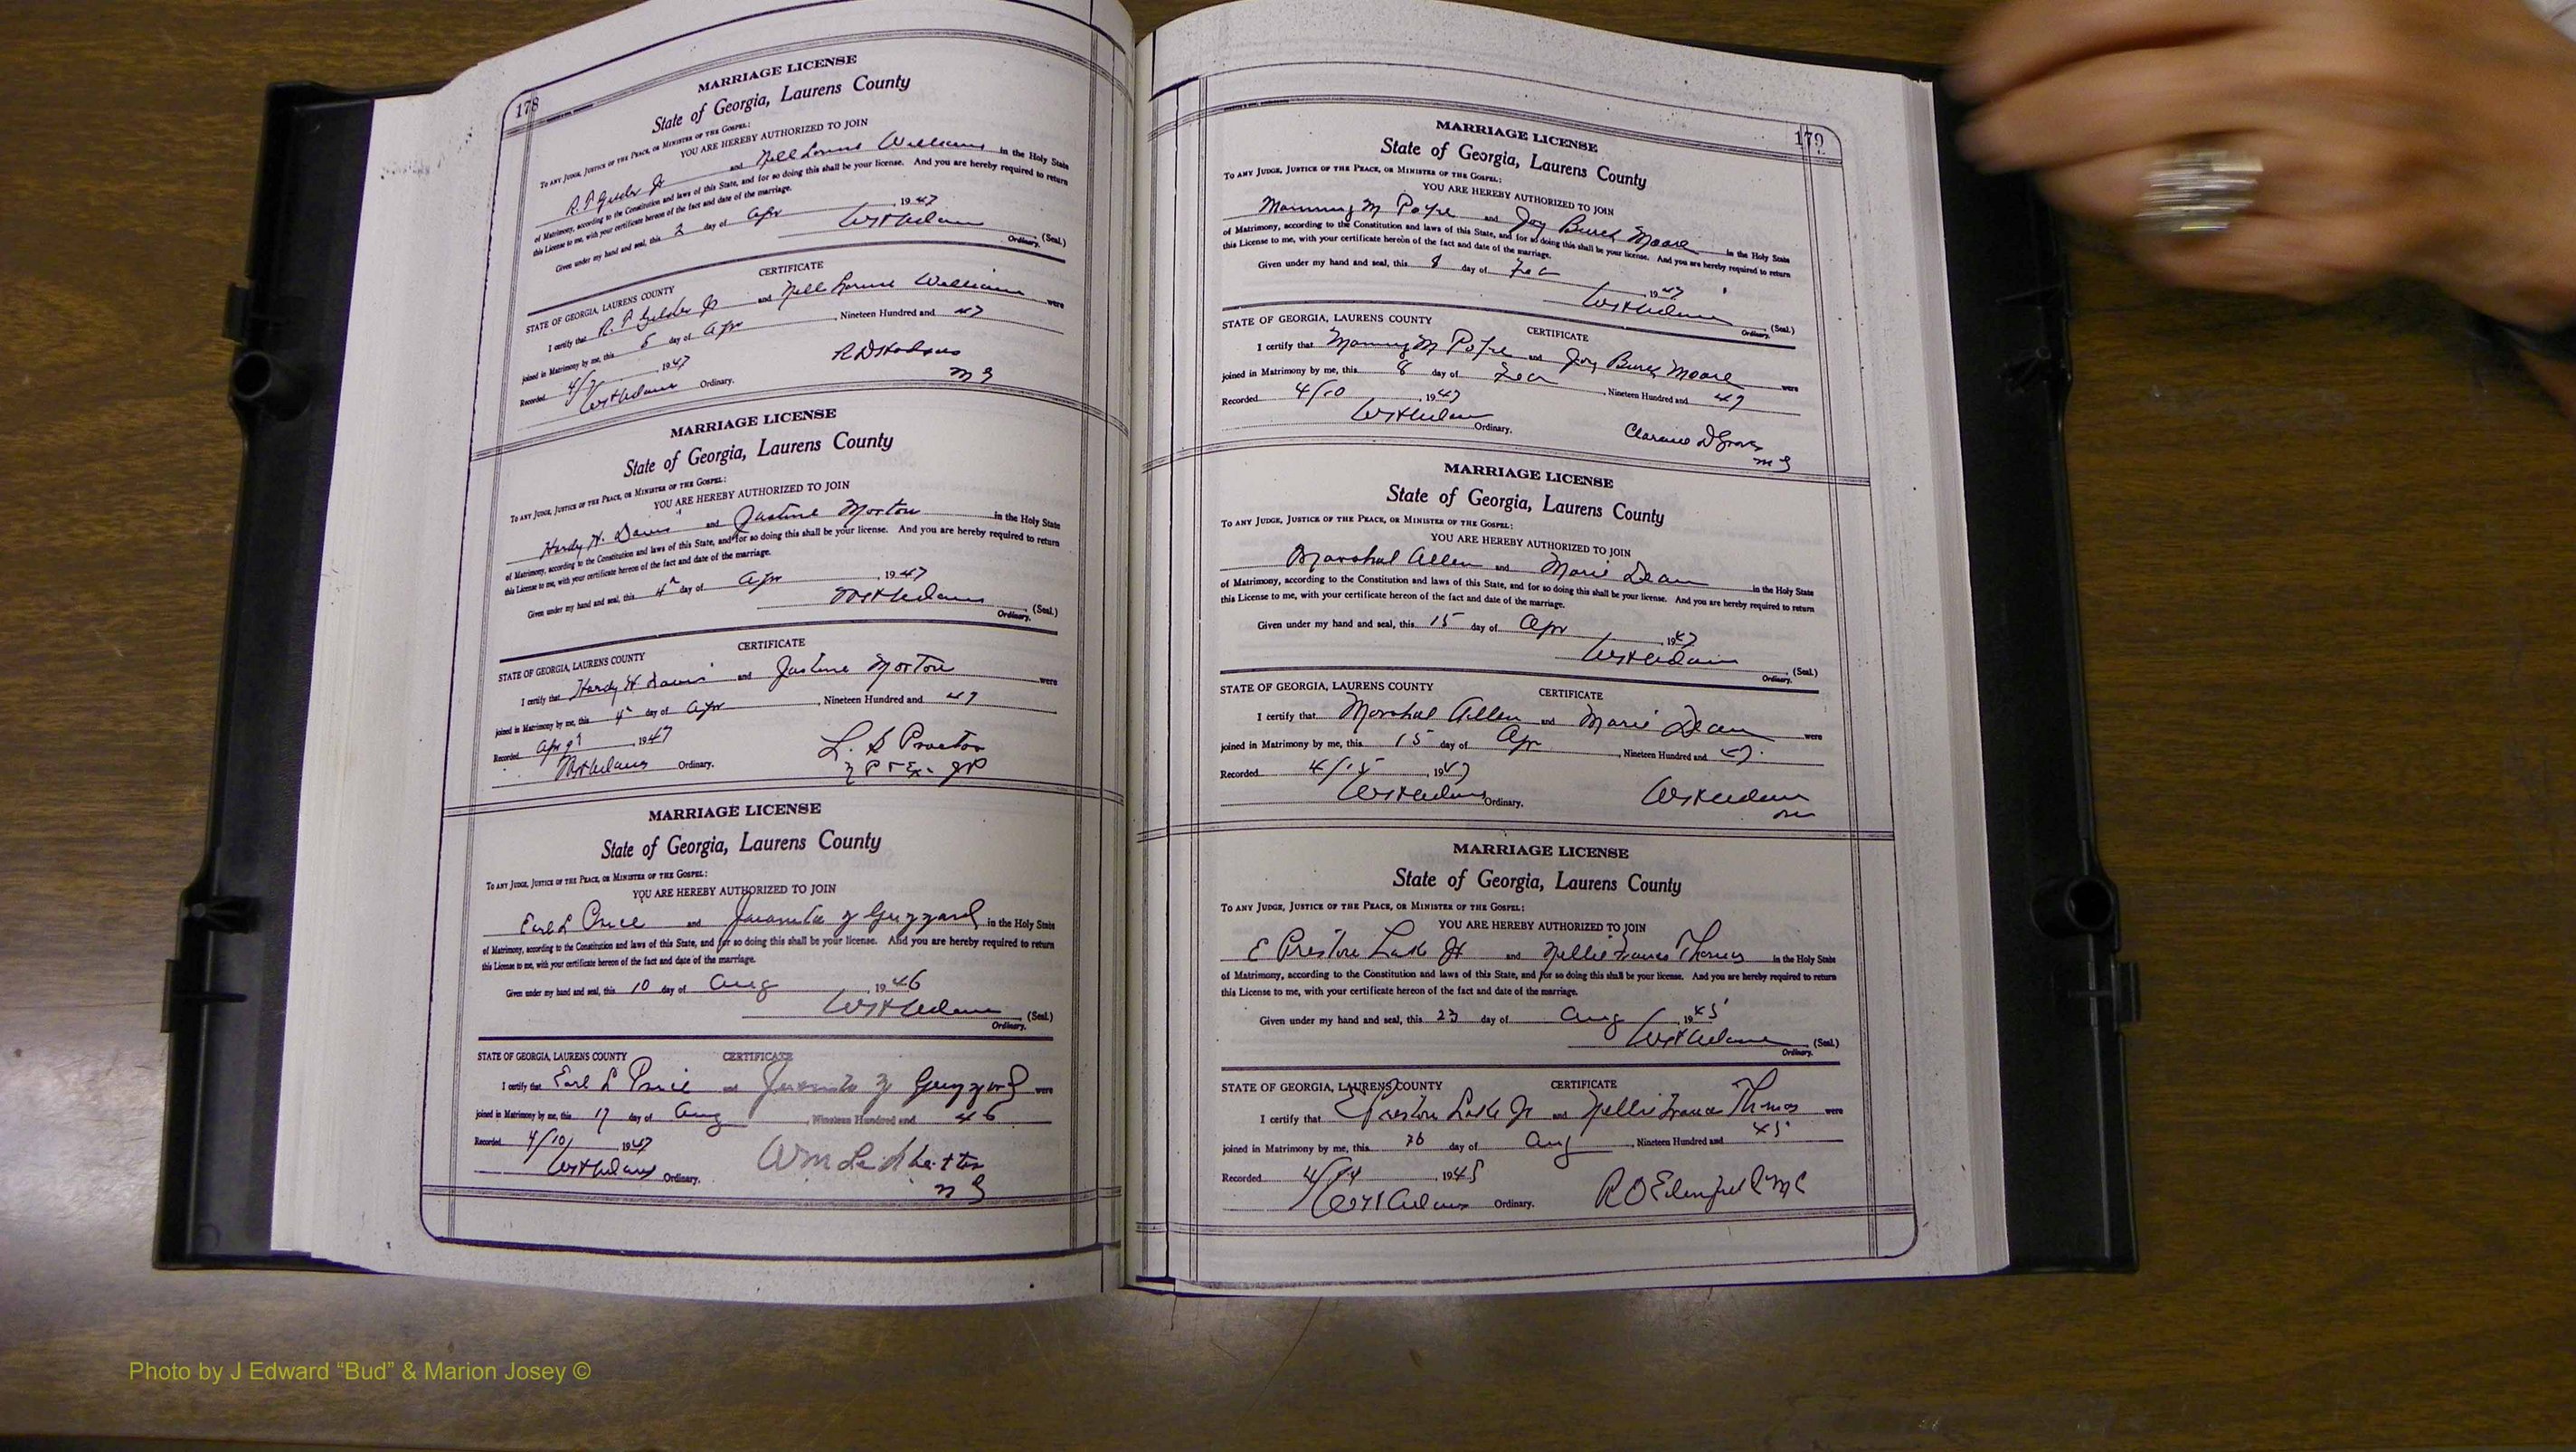 178
MARRIAGE LICENSE
State of Georgia, Laurens County
To ANY JUDGE, JUSTICE OF THE PEACE, OR MINISTER OF THE GOSPEL:
YOU ARE HEREBY AUTHORIZED TO JOIN
R. P. Jr and Nell Williams in the Holy State
of Matrimony, according to the Constitution and laws of this State, and for so doing this shall be your license. And you are hereby required to return
this License to me, with your certificate hereon of the fact and date of the marriage.
Given under my hand and seal, this 2 day of Apr, 1947
(Seal.)
Ordinary.
CERTIFICATE
STATE OF GEORGIA, LAURENS COUNTY
I certify that R. P. Jr and Nell Williams were
joined in Matrimony by me, this 5 day of Apr, Nineteen Hundred and 47
Recorded 4/7 1947
Ordinary.
M G
MARRIAGE LICENSE
State of Georgia, Laurens County
To ANY JUDGE, JUSTICE OF THE PEACE, OR MINISTER OF THE GOSPEL:
YOU ARE HEREBY AUTHORIZED TO JOIN
Hardy H. Davis and Justine Morton in the Holy State
of Matrimony, according to the Constitution and laws of this State, and for so doing this shall be your license. And you are hereby required to return
this License to me, with your certificate hereon of the fact and date of the marriage.
Given under my hand and seal, this 4 day of Apr, 1947
(Seal.)
Ordinary.
CERTIFICATE
STATE OF GEORGIA, LAURENS COUNTY
I certify that Hardy H Davis and Justine Morton were
joined in Matrimony by me, this 4 day of Apr, Nineteen Hundred and 47
Recorded Apr 9, 1947
L. S Proctor
Ordinary.
MARRIAGE LICENSE
State of Georgia, Laurens County
To ANY JUDGE, JUSTICE OF THE PEACE, OR MINISTER OF THE GOSPEL:
YOU ARE HEREBY AUTHORIZED TO JOIN
Earl L Price and Juanita Guzzard in the Holy State
of Matrimony, according to the Constitution and laws of this State, and for so doing this shall be your license. And you are hereby required to return
this License to me, with your certificate hereon of the fact and date of the marriage.
Given under my hand and seal, this 10 day of Aug, 1946
(Seal.)
Ordinary.
STATE OF GEORGIA, LAURENS COUNTY CERTIFICATE
I certify that Earl L Price and Juanita Guzzard were
joined in Matrimony by me, this 17 day of Aug, Nineteen Hundred and 46
Recorded 4/10/ 1947
Wm Leadbetter
Ordinary.
M G
179
MARRIAGE LICENSE
State of Georgia, Laurens County
To ANY JUDGE, JUSTICE OF THE PEACE, OR MINISTER OF THE GOSPEL:
YOU ARE HEREBY AUTHORIZED TO JOIN
Manning M Pope and Joy Burch Moore in the Holy State
of Matrimony, according to the Constitution and laws of this State, and for so doing this shall be your license. And you are hereby required to return
this License to me, with your certificate hereon of the fact and date of the marriage.
Given under my hand and seal, this 8 day of 1947
(Seal.)
Ordinary.
STATE OF GEORGIA, LAURENS COUNTY CERTIFICATE
I certify that Manning M Pope and Joy Burch Moore were
joined in Matrimony by me, this 8 day of , Nineteen Hundred and 47
Recorded 4/10, 1947
Ordinary.
M G
MARRIAGE LICENSE
State of Georgia, Laurens County
To ANY JUDGE, JUSTICE OF THE PEACE, OR MINISTER OF THE GOSPEL:
YOU ARE HEREBY AUTHORIZED TO JOIN
Marshal Allen and Marie Dean in the Holy State
of Matrimony, according to the Constitution and laws of this State, and for so doing this shall be your license. And you are hereby required to return
this License to me, with your certificate hereon of the fact and date of the marriage.
Given under my hand and seal, this 15 day of Apr, 1947
(Seal.)
Ordinary.
STATE OF GEORGIA, LAURENS COUNTY CERTIFICATE
I certify that Marshal Allen and Marie Dean were
joined in Matrimony by me, this 15 day of Apr, Nineteen Hundred and 47.
Recorded 4/15, 1947
Ordinary.
MARRIAGE LICENSE
State of Georgia, Laurens County
To ANY JUDGE, JUSTICE OF THE PEACE, OR MINISTER OF THE GOSPEL:
YOU ARE HEREBY AUTHORIZED TO JOIN
E Preston Jr and Nellie Frances Thomas in the Holy State
of Matrimony, according to the Constitution and laws of this State, and for so doing this shall be your license. And you are hereby required to return
this License to me, with your certificate hereon of the fact and date of the marriage.
Given under my hand and seal, this 23 day of Aug, 1945
(Seal.)
Ordinary.
STATE OF GEORGIA, LAURENS COUNTY CERTIFICATE
I certify that Preston Jr and Nellie Frances Thomas were
joined in Matrimony by me, this 26 day of Aug, Nineteen Hundred and 45
Recorded 4/14, 1945
Ordinary.
Photo by J Edward “Bud” & Marion Josey ©